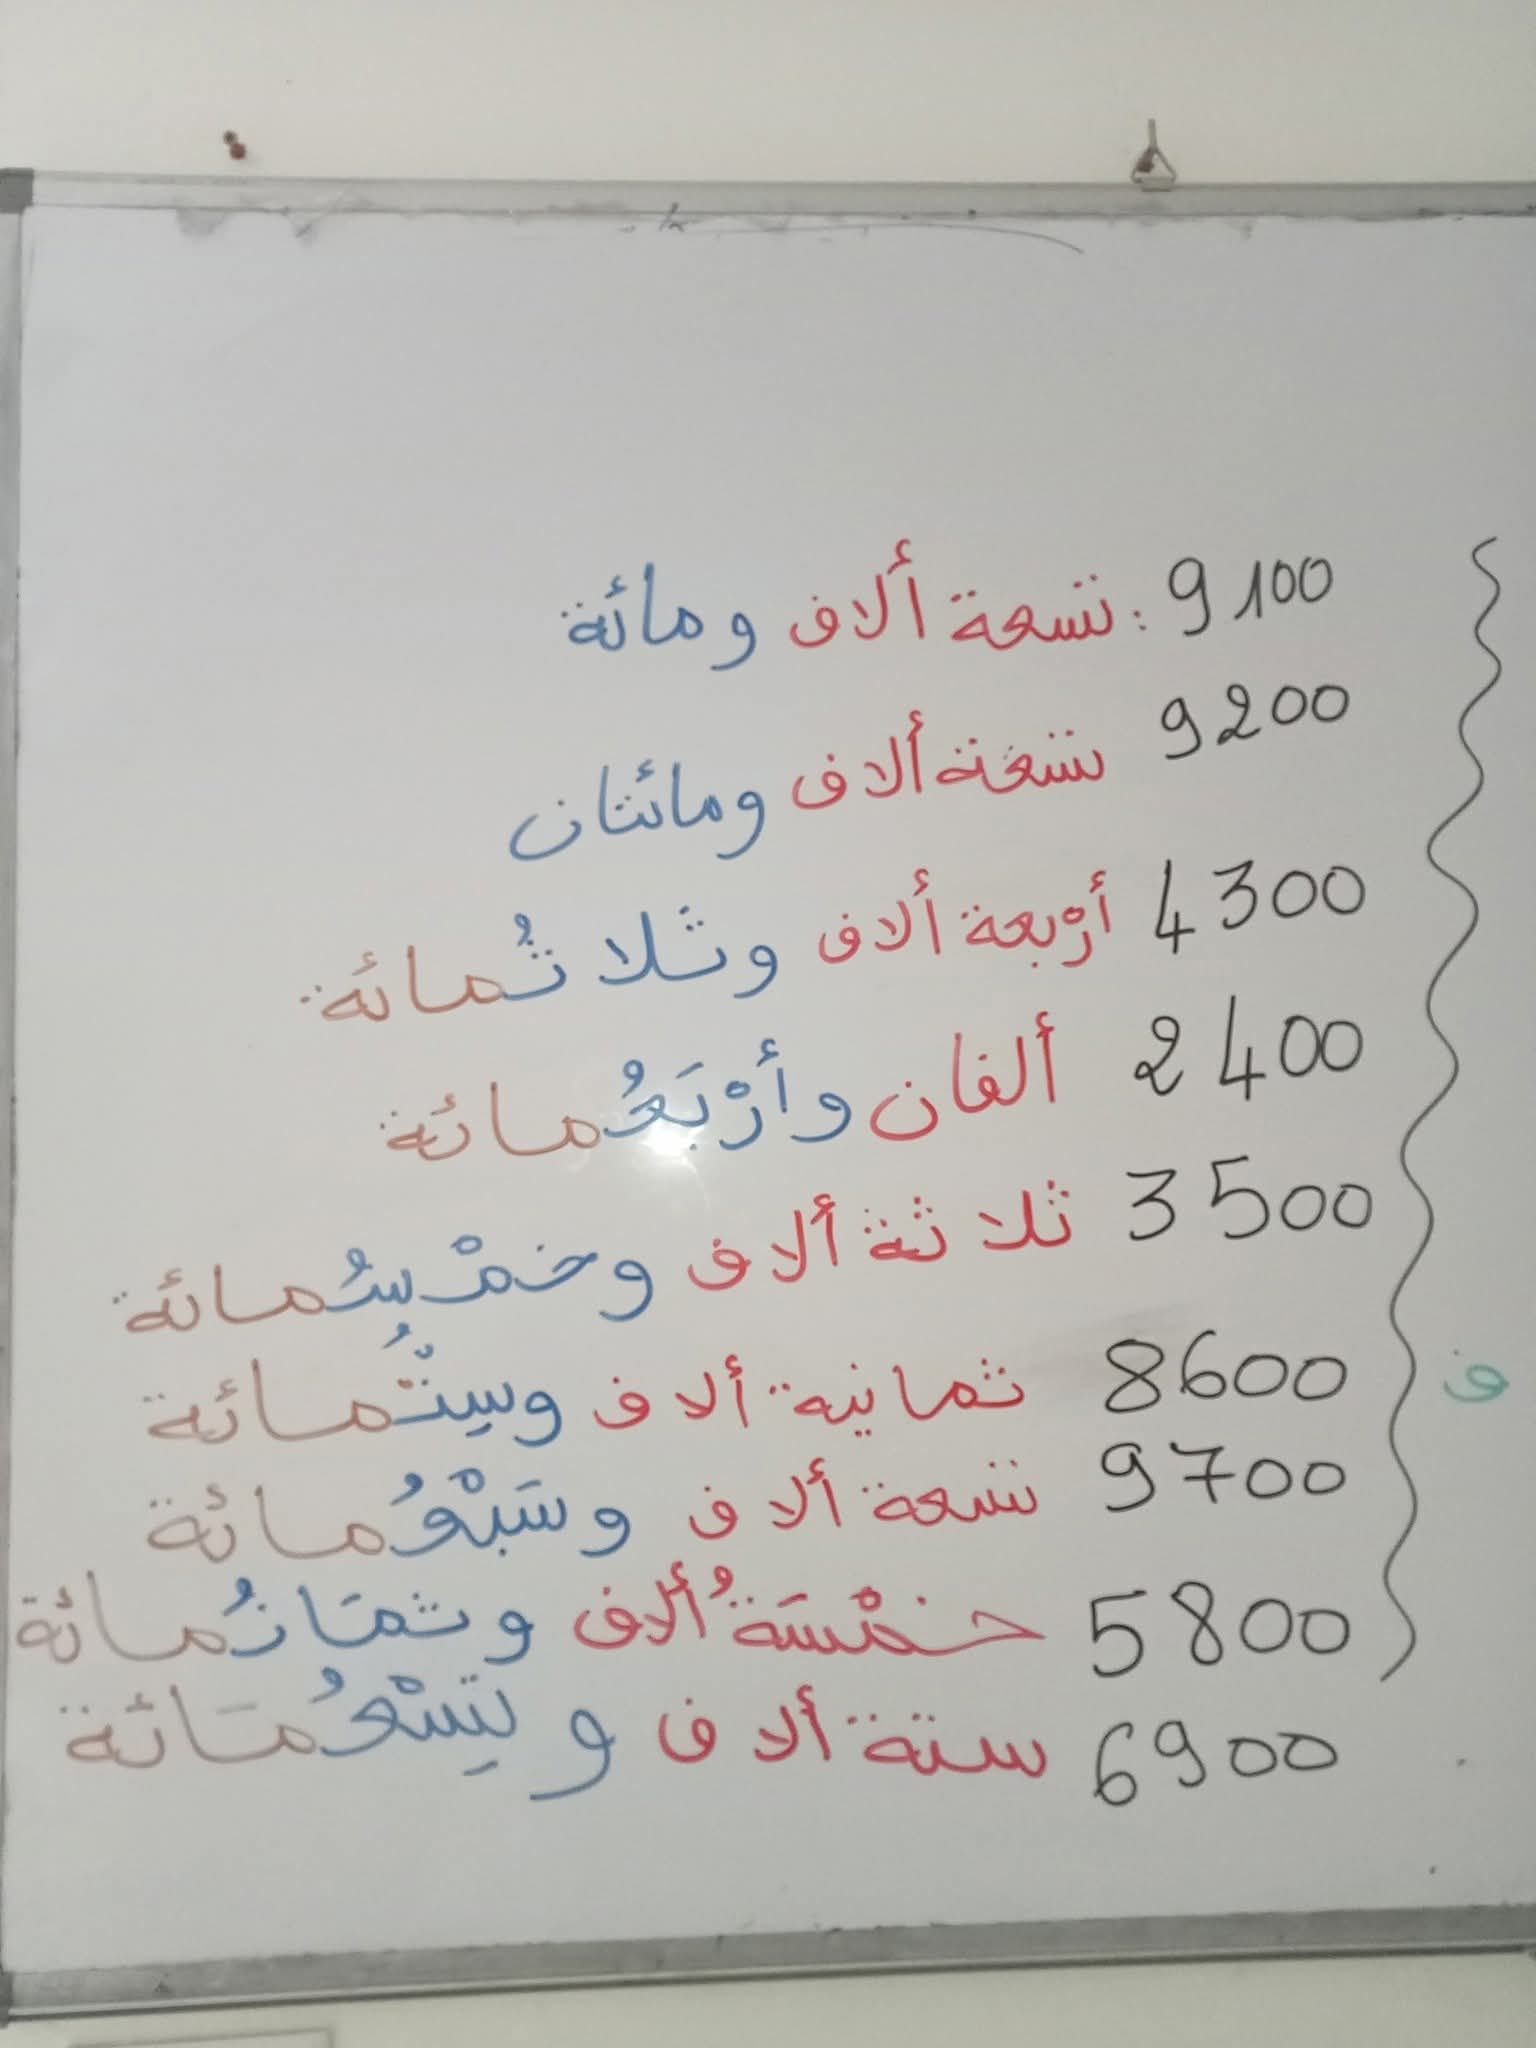 9100 : تسعة ألاف ومائة
9200 تسعة ألاف ومائتان
4300 أرْبعة ألاف وثَلاثُمائة
2400 ألفان وأرْبَعُمائة
3500 ثلاثة ألاف وخمْسُمائة
8600 ثمانية ألاف وسِتُّمائة
ف
9700 تسعة ألاف وسَبْعُمائة
5800 خمْسَةُ ألاف وثمَانُمائة
6900 ستة ألاف وتِسْعُمَائة